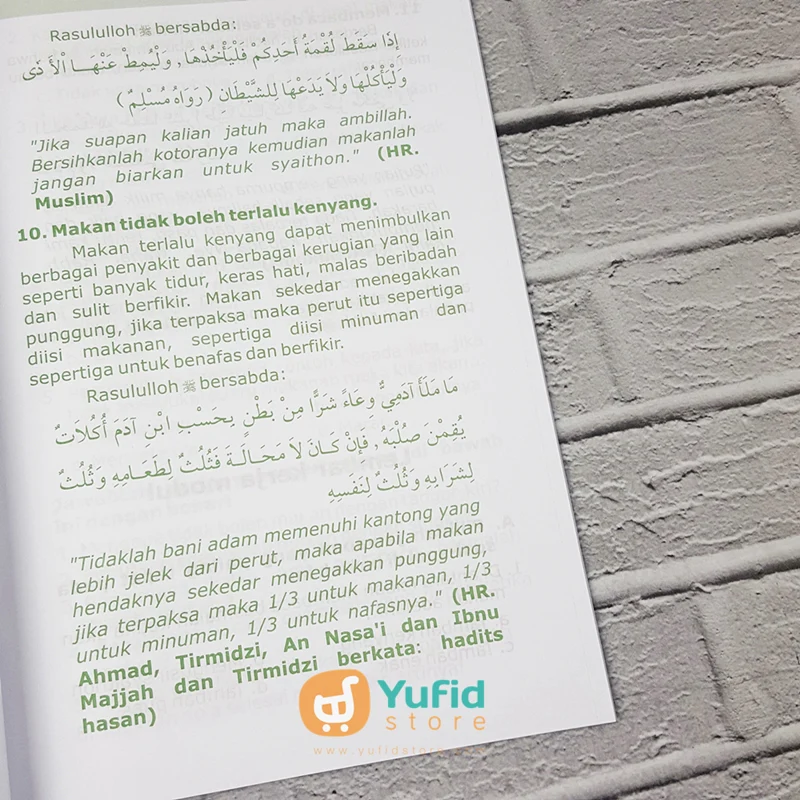 Rasululloh ﷺ bersabda:
إِذَا سَقَطَ لُقْمَةُ أَحَدِكُمْ فَلْيَأْخُذْهَا, وَلْيُمِطْ عَنْهَا الْأَذَى
وَلْيَأْكُلْهَا وَلاَ يَدَعْهَا لِلشَّيْطَانِ (رَوَاهُ مُسْلِمٌ)
"Jika suapan kalian jatuh maka ambillah.
Bersihkanlah kotoranya kemudian makanlah
jangan biarkan untuk syaithon." (HR.
Muslim)
10. Makan tidak boleh terlalu kenyang.
Makan terlalu kenyang dapat menimbulkan
berbagai penyakit dan berbagai kerugian yang lain
seperti banyak tidur, keras hati, malas beribadah
dan sulit berfikir. Makan sekedar menegakkan
punggung, jika terpaksa maka perut itu sepertiga
diisi makanan, sepertiga diisi minuman dan
sepertiga untuk benafas dan berfikir.
Rasululloh ﷺ bersabda:
مَا مَلَأَ آدَمِيٌّ وِعَاءً شَرًّا مِنْ بَطْنٍ بِحَسْبِ ابْنِ آدَمَ أُكُلاَتٌ
يُقِمْنَ صُلْبَهُ, فَإِنْ كَانَ لاَ مَحَالَةَ فَثُلُثٌ لِطَعَامِهِ وَثُلُثٌ
لِشَرَابِهِ وَثُلُثٌ لِنَفَسِهِ
"Tidaklah bani adam memenuhi kantong yang
lebih jelek dari perut, maka apabila makan
hendaknya sekedar menegakkan punggung,
jika terpaksa maka 1/3 untuk makanan, 1/3
untuk minuman, 1/3 untuk nafasnya." (HR.
Ahmad, Tirmidzi, An Nasa'i dan Ibnu
Majjah dan Tirmidzi berkata: hadits
hasan)
Yufid
store